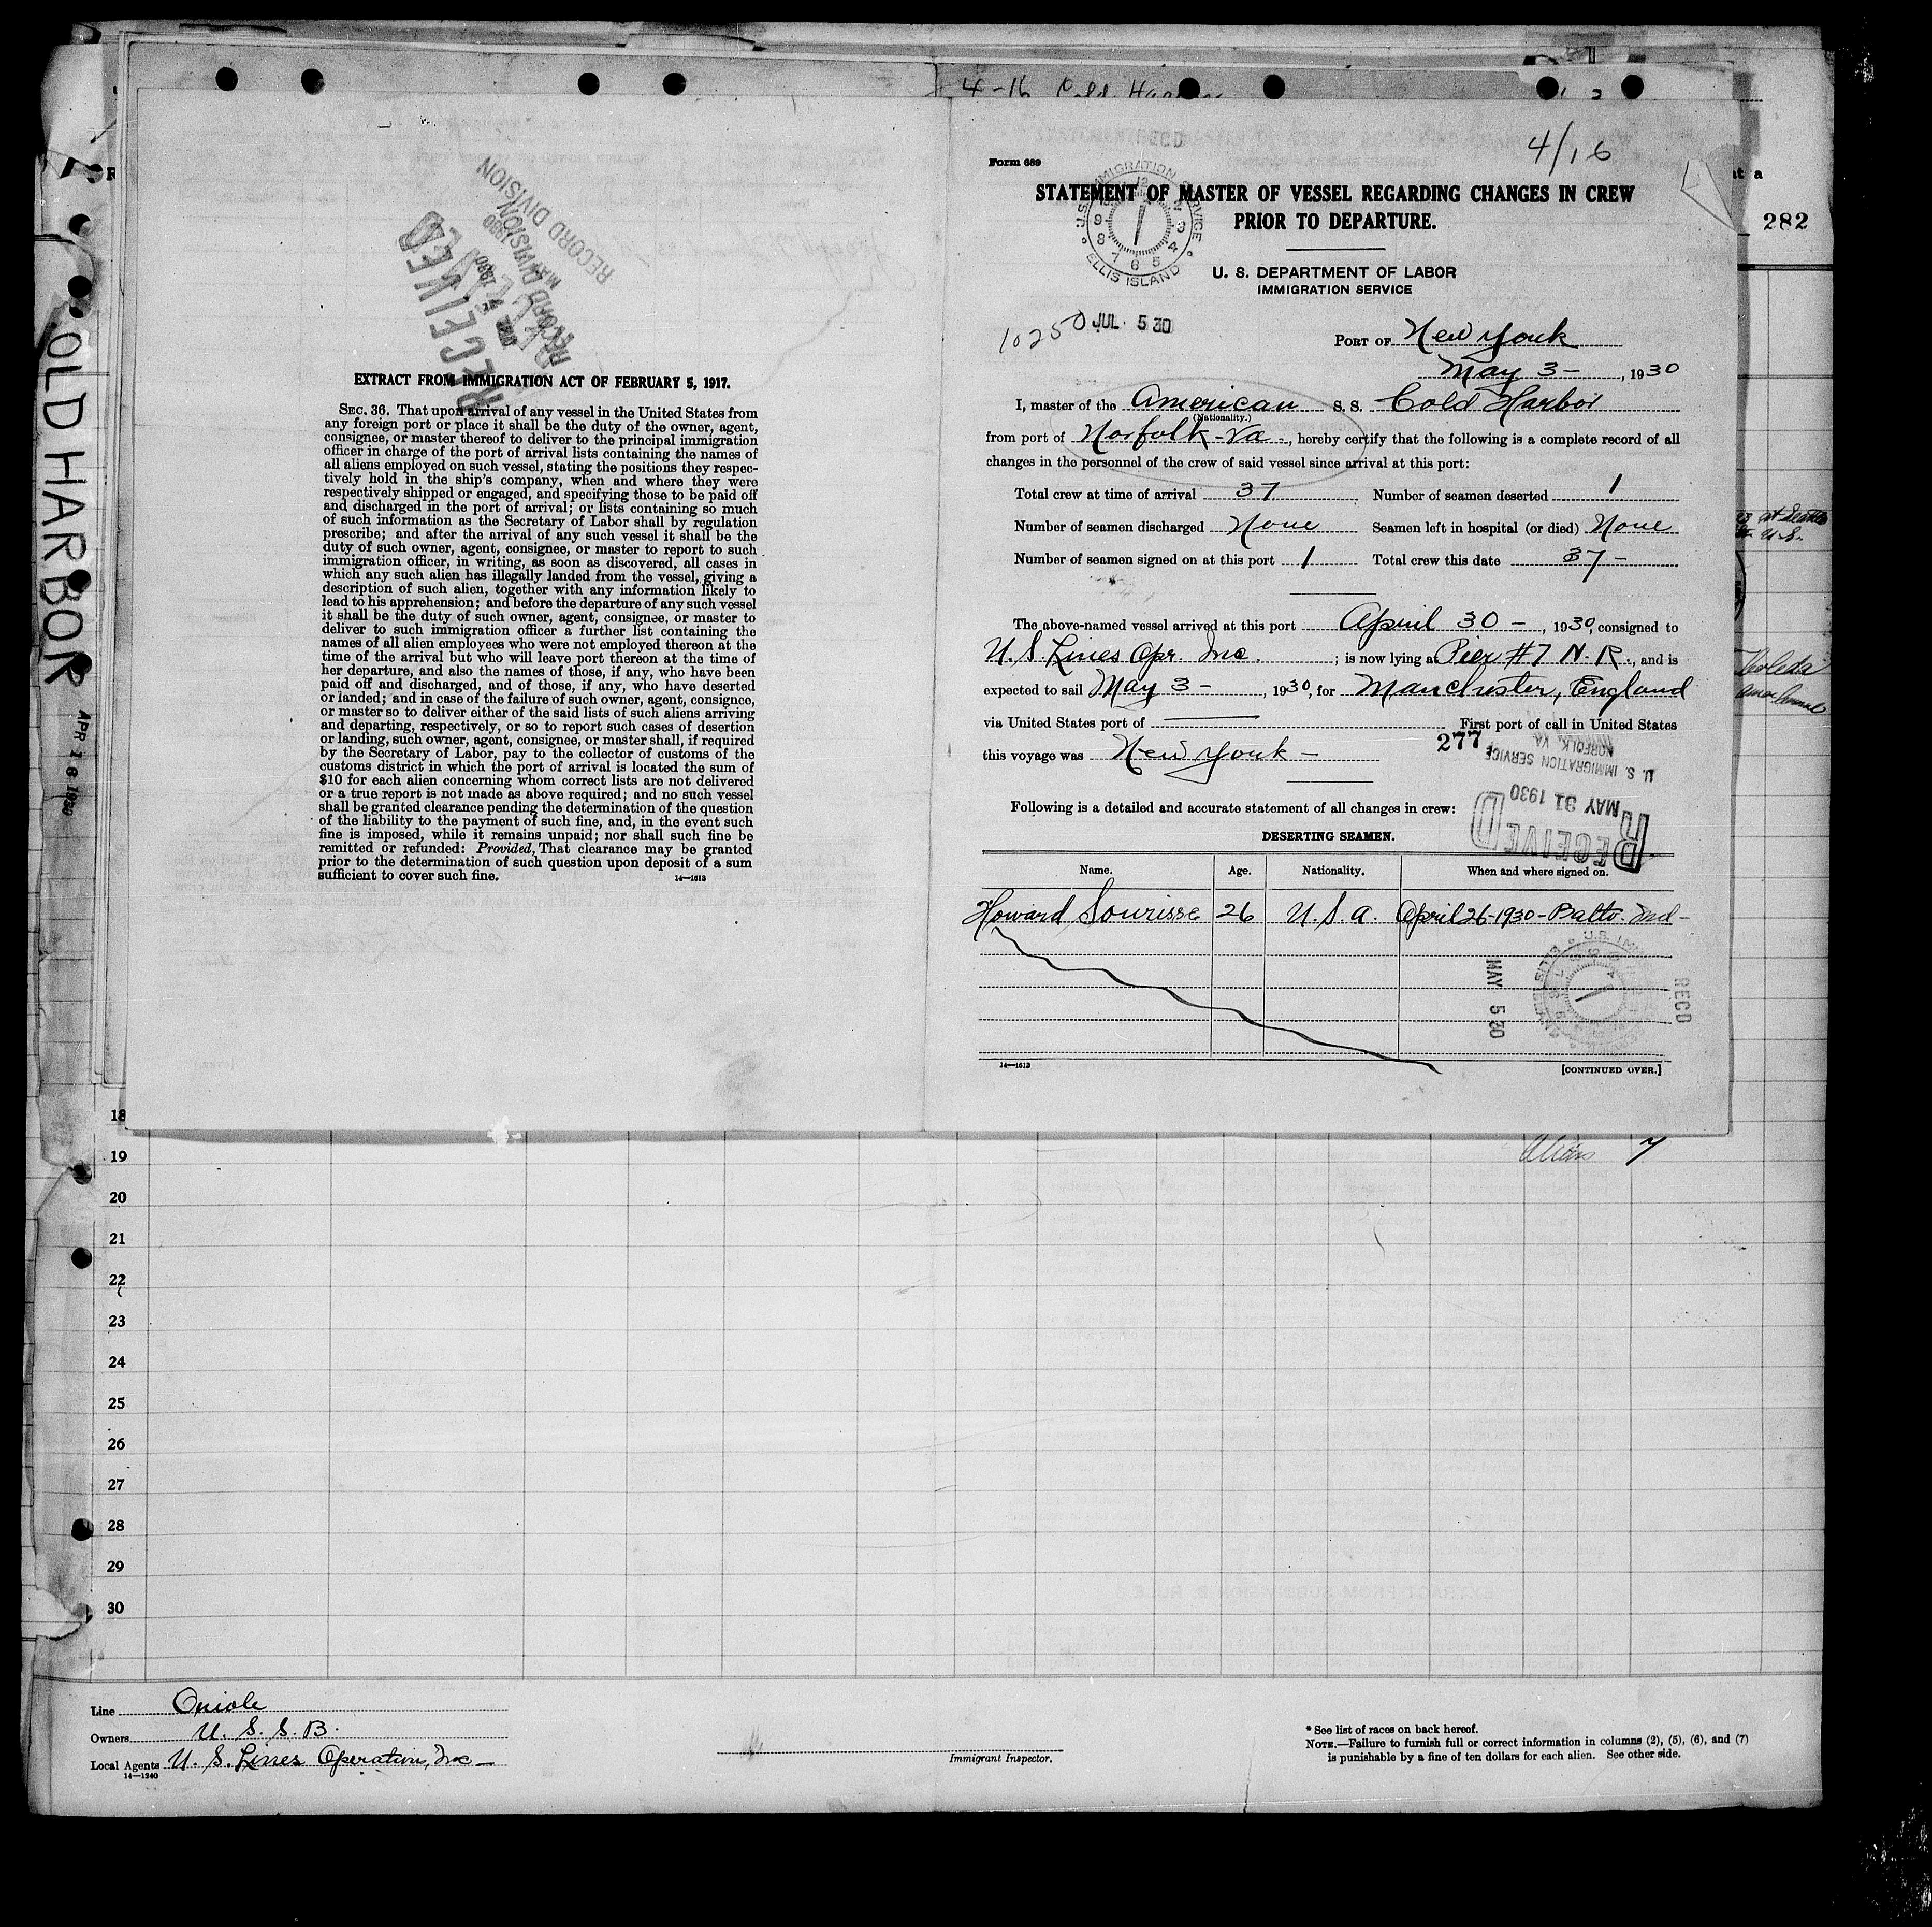 COLD HARBOR
APR 16 1930
RECEIVED
RECORD DIVISION
RECORD DIVISION
EXTRACT FROM IMMIGRATION ACT OF FEBRUARY 5, 1917.
SEC. 36. That upon arrival of any vessel in the United States from
any foreign port or place it shall be the duty of the owner, agent,
consignee, or master thereof to deliver to the principal immigration
officer in charge of the port of arrival lists containing the names of
all aliens employed on such vessel, stating the positions they respec-
tively hold in the ship's company, when and where they were
respectively shipped or engaged, and specifying those to be paid off
and discharged in the port of arrival; or lists containing so much
of such information as the Secretary of Labor shall by regulation
prescribe; and after the arrival of any such vessel it shall be the
duty of such owner, agent, consignee, or master to report to such
immigration officer, in writing, as soon as discovered, all cases in
which any such alien has illegally landed from the vessel, giving a
description of such alien, together with any information likely to
lead to his apprehension; and before the departure of any such vessel
it shall be the duty of such owner, agent, consignee, or master to
deliver to such immigration officer a further list containing the
names of all alien employees who were not employed thereon at the
time of the arrival but who will leave port thereon at the time of
her departure, and also the names of those, if any, who have been
paid off and discharged, and of those, if any, who have deserted
or landed; and in case of the failure of such owner, agent, consignee,
or master so to deliver either of the said lists of such aliens arriving
and departing, respectively, or so to report such cases of desertion
or landing, such owner, agent, consignee, or master shall, if required
by the Secretary of Labor, pay to the collector of customs of the
customs district in which the port of arrival is located the sum of
$10 for each alien concerning whom correct lists are not delivered
or a true report is not made as above required; and no such vessel
shall be granted clearance pending the determination of the question
of the liability to the payment of such fine, and, in the event such
fine is imposed, while it remains unpaid; nor shall such fine be
remitted or refunded: Provided, That clearance may be granted
prior to the determination of such question upon deposit of a sum
sufficient to cover such fine.
14—1613
4-16 Cold Harbor
4/16
282
Form 689
STATEMENT OF MASTER OF VESSEL REGARDING CHANGES IN CREW
PRIOR TO DEPARTURE.
U.S. IMMIGRATION SERVICE ELLIS ISLAND
U. S. DEPARTMENT OF LABOR
IMMIGRATION SERVICE
10250 JUL 5 30
PORT OF New York
May 3 -, 1930
I, master of the American S. S. Cold Harbor
(Nationality.)
from port of Norfolk - Va, hereby certify that the following is a complete record of all
changes in the personnel of the crew of said vessel since arrival at this port:
Total crew at time of arrival 37 Number of seamen deserted 1
Number of seamen discharged None Seamen left in hospital (or died) None
Number of seamen signed on at this port 1 Total crew this date 37 -
The above-named vessel arrived at this port April 30 -, 1930, consigned to
U. S. Lines Opr. Inc.; is now lying at Pier #7 N. R., and is
expected to sail May 3 -, 1930, for Manchester, England
via United States port of First port of call in United States
this voyage was New York -
277
U. S. IMMIGRATION SERVICE
NORFOLK, VA
RECEIVED
MAY 31 1930
Following is a detailed and accurate statement of all changes in crew:
DESERTING SEAMEN.
Name. Age. Nationality. When and where signed on.
Howard Sourisse 26 U. S. a. April 26-1930 - Balto. Md -
RECD
MAY 5 30
14—1613
[CONTINUED OVER.]
18
19
20
21
22
23
24
25
26
27
28
29
30
Aliens 7
Line Oriole
Owners U. S. S. B.
Local Agents U. S. Lines Operation, Inc -
14—1240
Immigrant Inspector.
* See list of races on back hereof.
NOTE.—Failure to furnish full or correct information in columns (2), (5), (6), and (7)
is punishable by a fine of ten dollars for each alien. See other side.